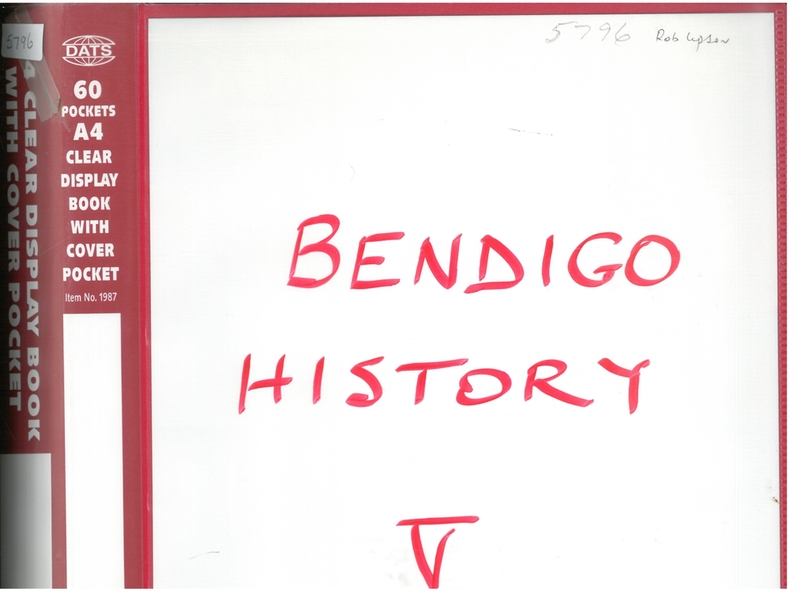 5796
4 CLEAR DISPLAY BOOK
WITH COVER POCKET
DATS
60
POCKETS
A4
CLEAR
DISPLAY
BOOK
WITH
COVER
POCKET
Item No. 1987
5796 Rob
BENDIGO
HISTORY
V